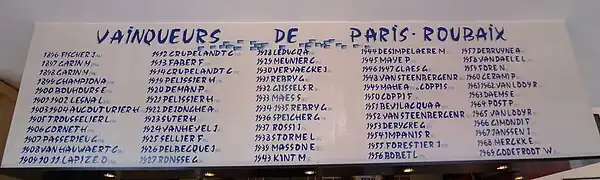 VAINQUEURS DE PARIS-ROUBAIX
1896 FISCHER J
1897 GARIN M
1898 GARIN M
1899 CHAMPION A
1900 BOUHOURS E
1901 1902 LESNA L
1903 1904 AUCOUTURIER H
1905 TROUSSELIER L
1906 CORNET H
1907 PASSERIEU G
1908 VAN HAUWAERT C
1909 10 11 LAPIZE O
1912 CRUPELANDT C
1913 FABER F
1914 CRUPELANDT C
1919 PELISSIER H
1920 DEMAN P
1921 PELISSIER H
1922 DEJONGHE A
1923 SUTER H
1924 VANHEVEL J
1925 SELLIER F
1926 DELBECQUE J
1927 RONSSE G
1928 LEDUCQ A
1929 MEUNIER C
1930 VERVAECKE J
1931 REBRY G
1932 GIJSSELS R
1933 MAES S
1934 1935 REBRY G
1936 SPEICHER G
1937 ROSSI J
1938 STORME L
1939 MASSON E
1943 KINT M
1944 DESIMPELAERE M
1945 MAYE P
1946 1947 CLAES G
1948 VAN STEENBERGEN R
1949 MAHE A COPPI S
1950 COPPI F
1951 BEVILACQUA A
1952 VAN STEENBERGEN R
1953 DERYCKE G
1954 IMPANIS R
1955 FORESTIER J
1956 BOBET L
1957 DEBRUYNE A
1958 VAN DAEL L
1959 FORE N
1960 CERAMI P
1961 1962 VAN LOOY R
1963 DAEMS E
1964 POST P
1965 VAN LOOY R
1966 GIMONDI F
1967 JANSSEN J
1968 MERCKX E
1969 GODEFROOT W